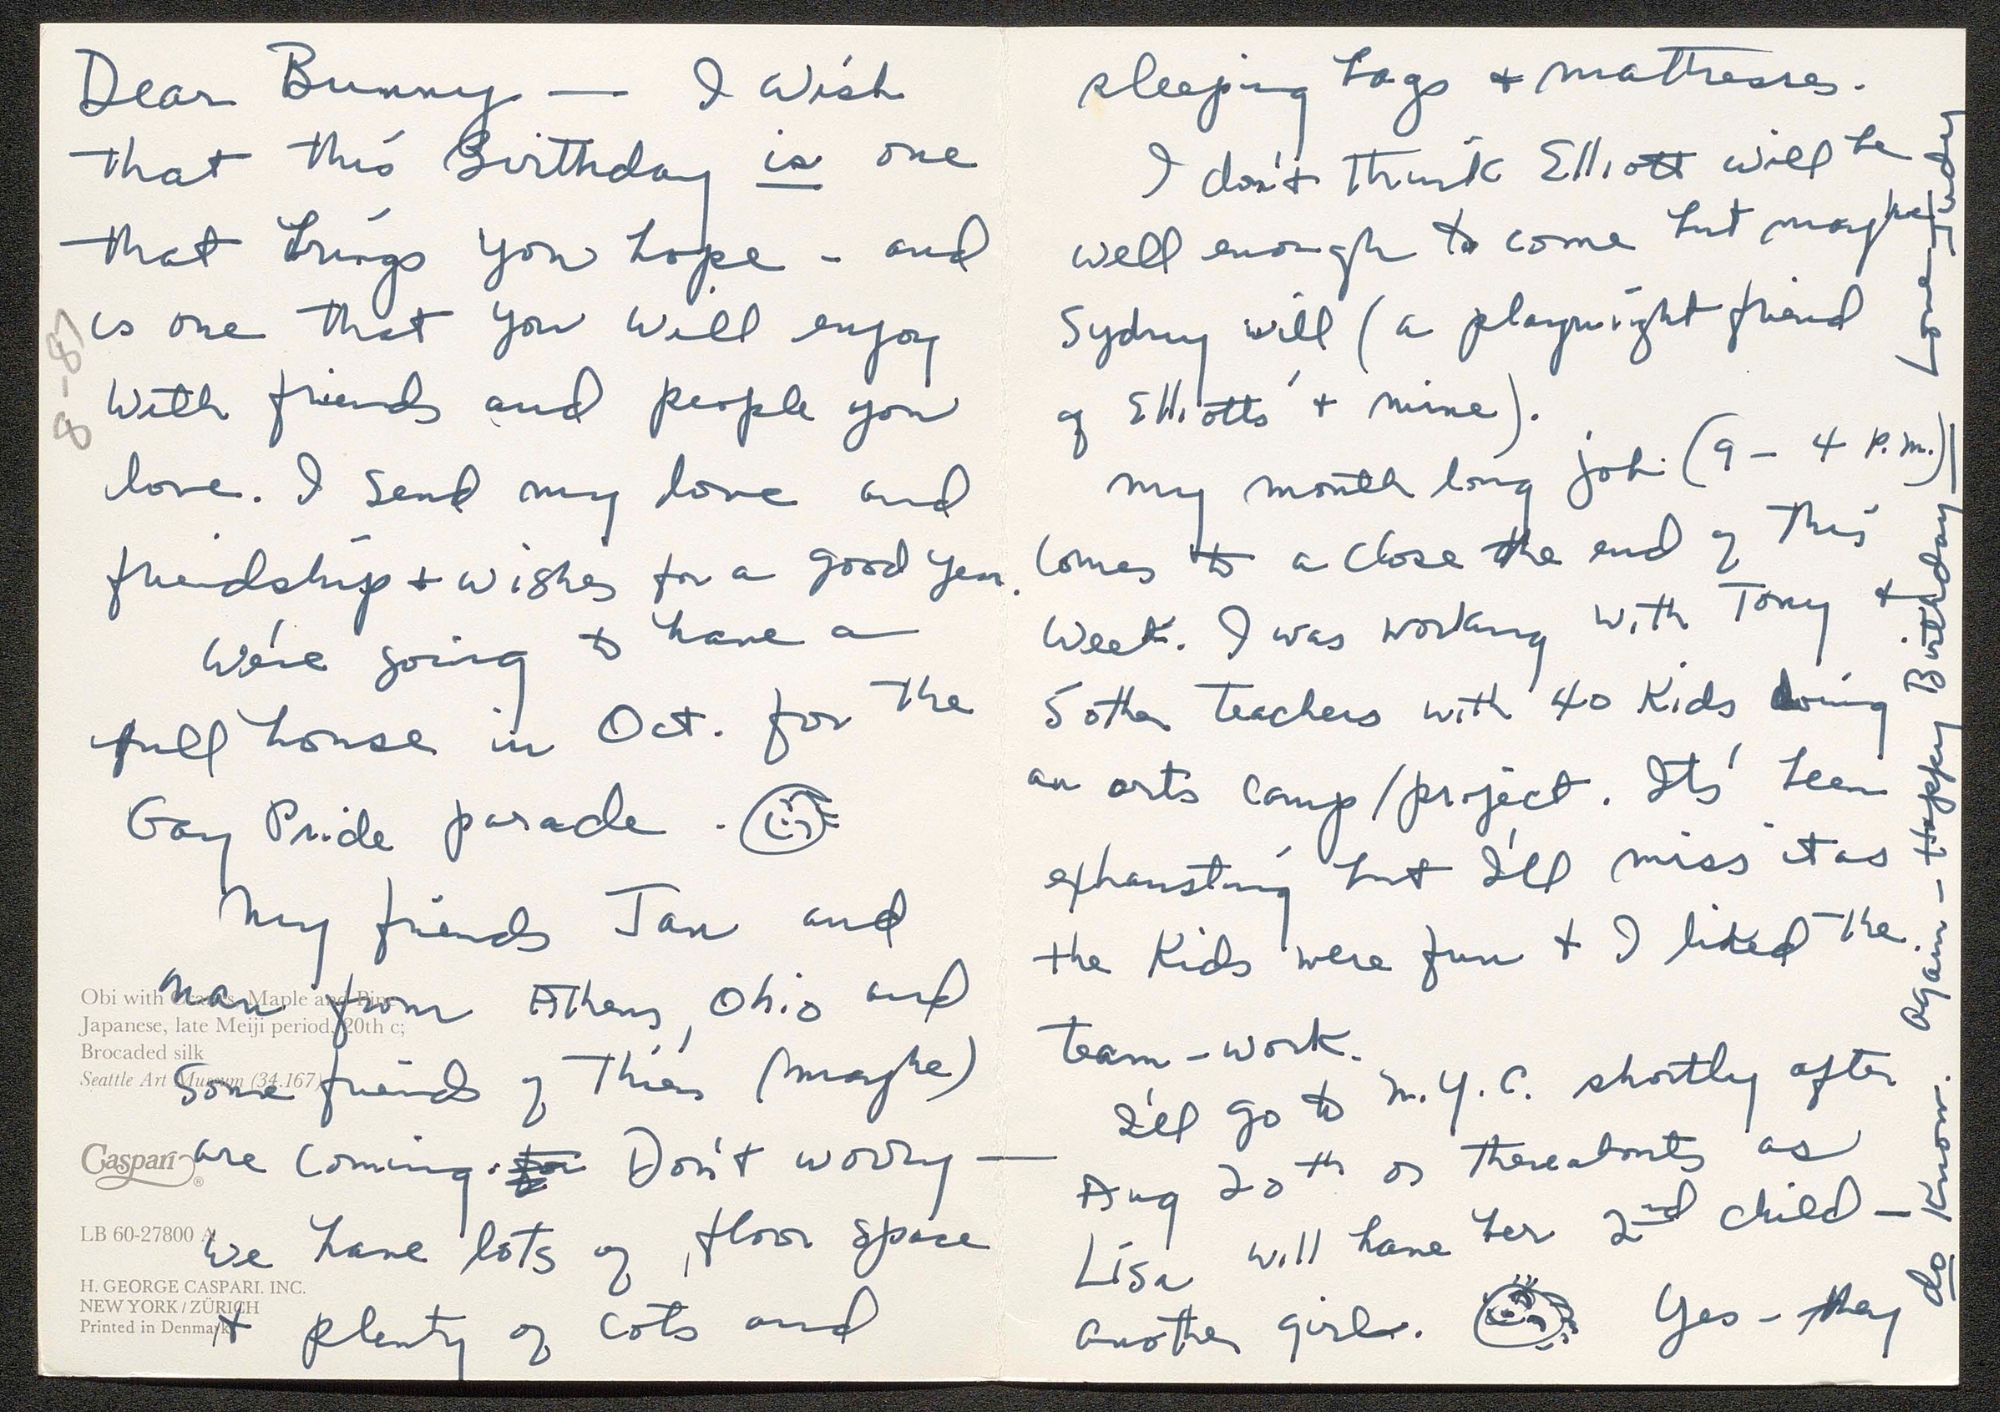 Dear Bunny — I wish
that this Birthday is one
that brings you hope - and
is one that you will enjoy
with friends and people you
love. I send my love and
friendship + wishes for a good year.
We're going to have a
full house in Oct. for the
Gay Pride parade.
My friends Jan and
Nan from Athens, Ohio and
some friends of Thiers (maybe)
are coming. Don't worry —
We have lots of floor space
+ plenty of cots and
8-87
Obi with Cranes, Maple and Pine
Japanese, late Meiji period, 20th c;
Brocaded silk
Seattle Art Museum (34.167)
Caspari®
LB 60-27800 A
H. GEORGE CASPARI. INC.
NEW YORK / ZÜRICH
Printed in Denmark
sleeping bags + mattresses.
I don't think Elliott will be
well enough to come but maybe
Sydney will (a playwright friend
of Elliotts' + mine).
My month long job (9 - 4 P.M.)
comes to a close the end of this
week. I was working with Tony +
5 other teachers with 40 Kids doing
an arts camp/project. Its' been
exhausting but I'll miss it as
the Kids were fun + I liked the
team-work.
I'll go to N.Y.C. shortly after
Aug 20th or thereabouts as
Lisa will have her 2nd child —
another girl. Yes - they
do know. Again - Happy Birthday
Love - Judey